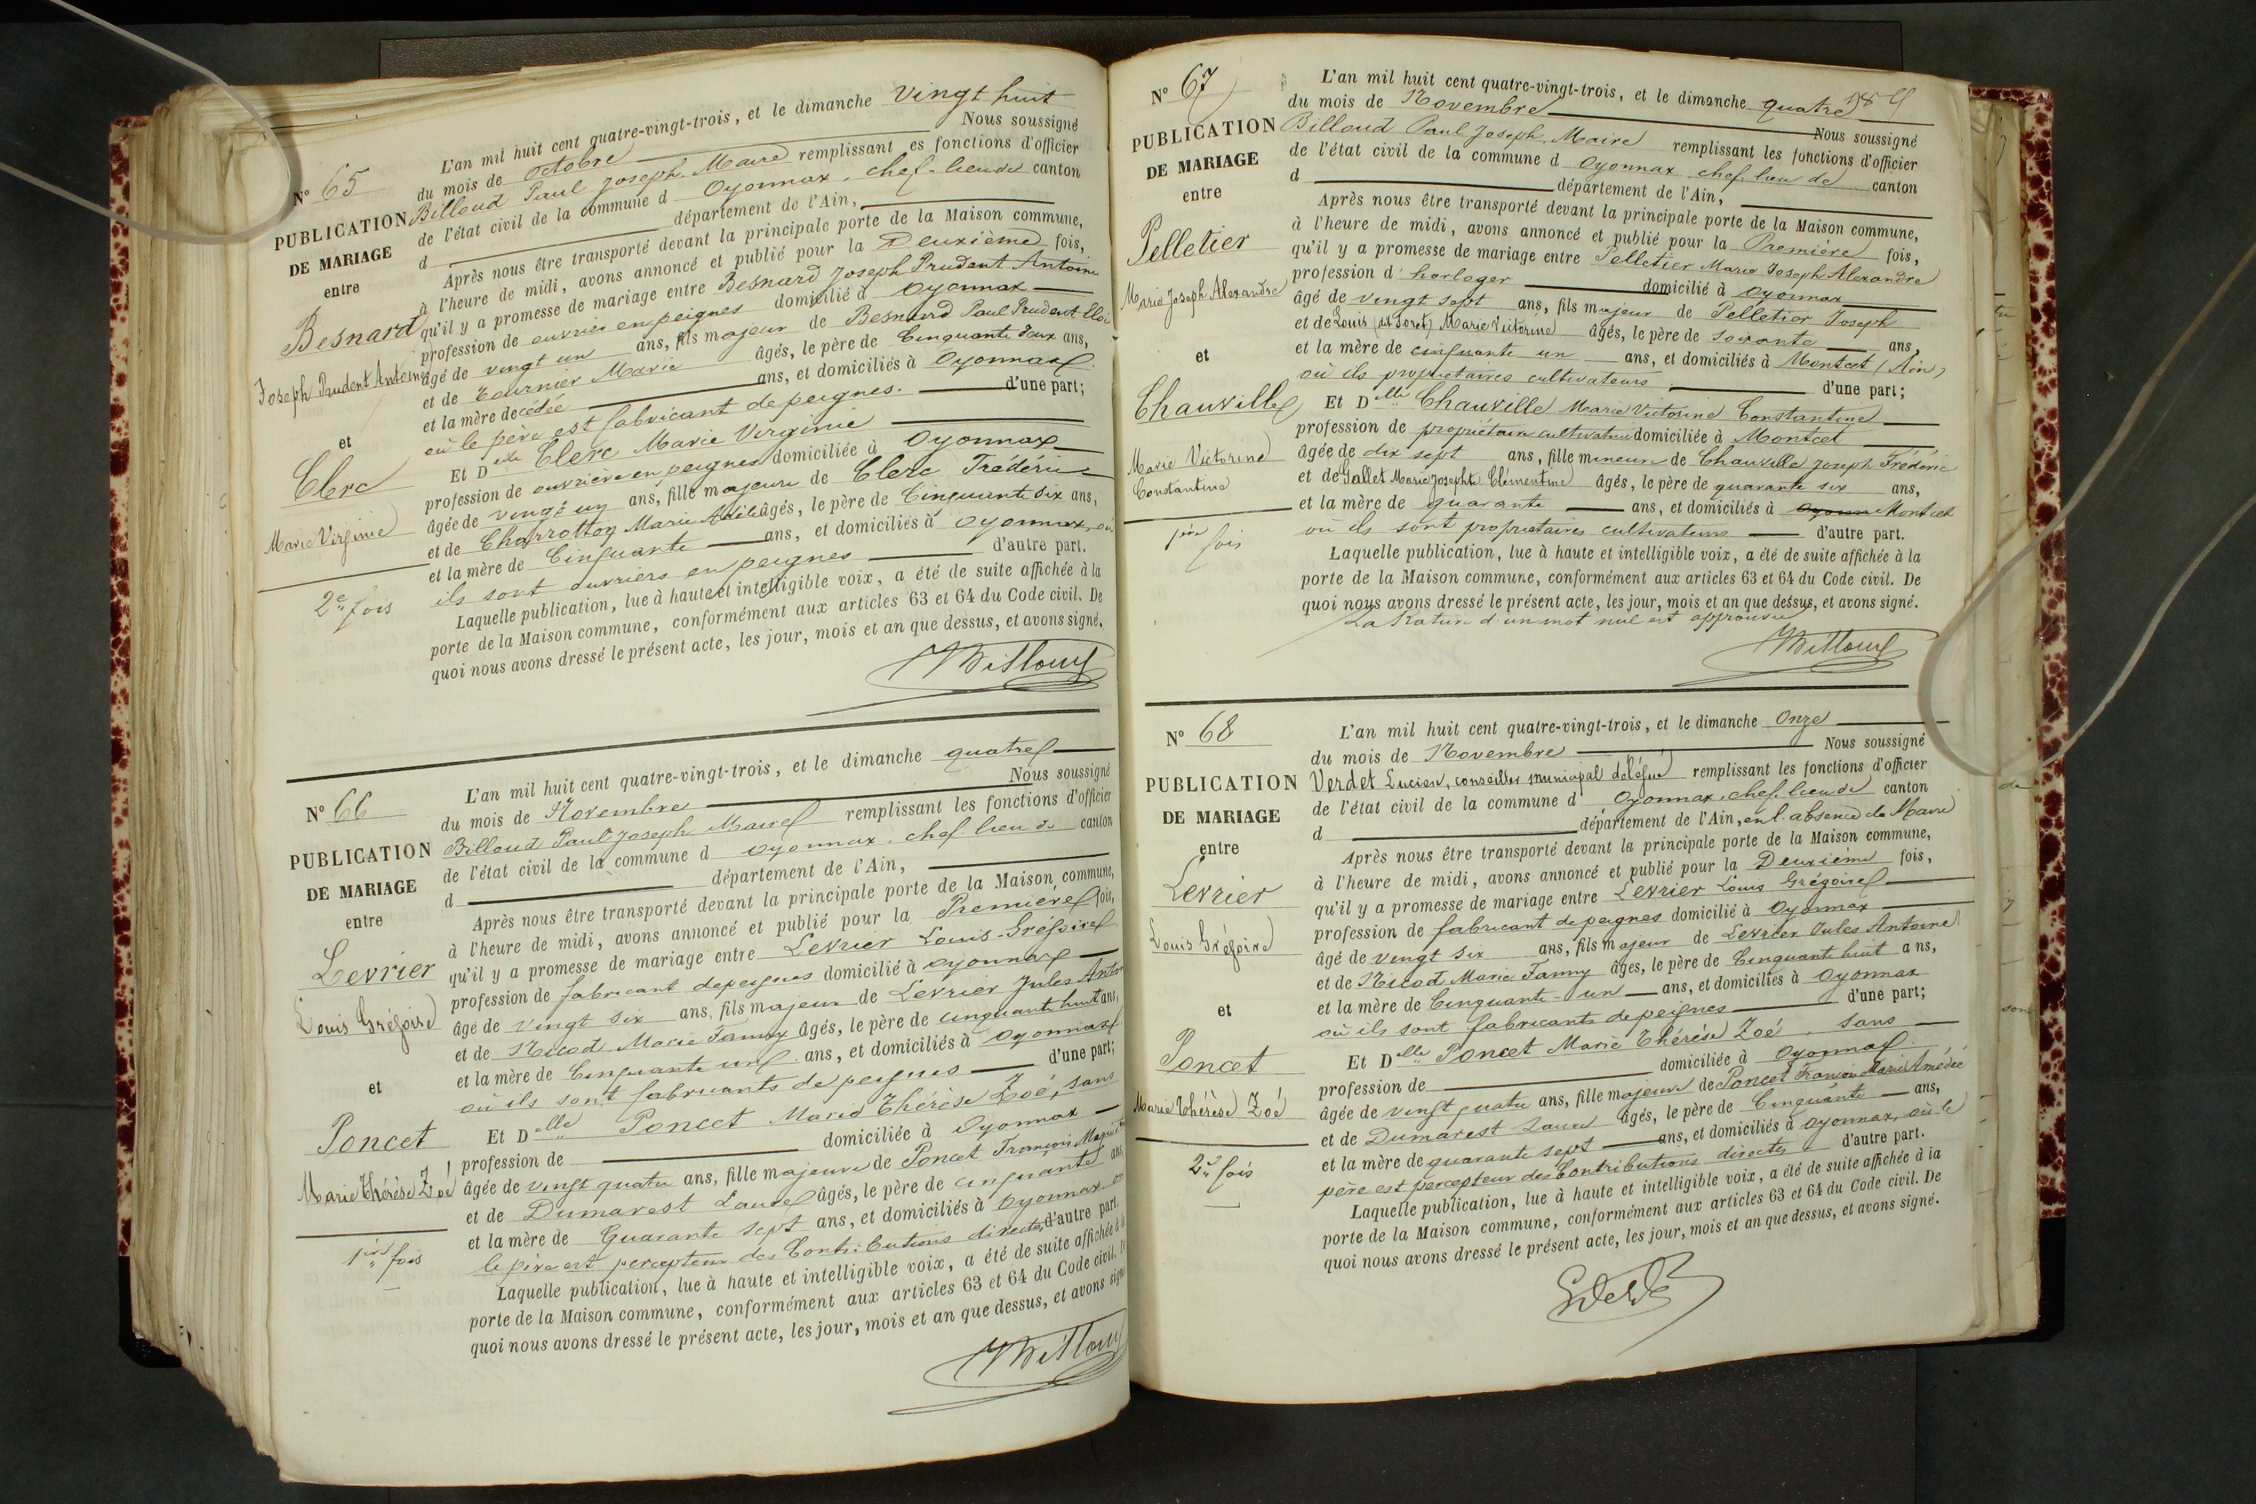 N° 65
PUBLICATION
DE MARIAGE
entre
Besnard
Joseph Prudent Antoine
et
Clerc
Marie Virginie
2e fois
L'an mil huit cent quatre-vingt-trois, et le dimanche vingt huit
du mois de octobre Nous soussigné
Billoud Paul Joseph. Maire remplissant es fonctions d'officier
de l'état civil de la commune d Oyonnax. chef-lieu de canton
d département de l'Ain,
Après nous être transporté devant la principale porte de la Maison commune,
à l'heure de midi, avons annoncé et publié pour la Deuxième fois,
qu'il y a promesse de mariage entre Besnard Joseph Prudent Antoine
profession de ouvrier en peignes domicilié à Oyonnax
âgé de vingt un ans, fils majeur de Besnard Paul Prudent Eloi
et de Tournier Marie âgés, le père de Cinquante deux ans,
et la mère decédée ans, et domiciliés à Oyonnax
où le père est fabricant de peignes. d'une part;
Et Delle Clerc Marie Virginie
profession de ouvrière en peignes domiciliée à Oyonnax
âgée de vingt un ans, fille majeure de Clerc Frédéric
et de Marie âgés, le père de Cinquante six ans,
et la mère de Cinquante ans, et domiciliés à Oyonnax, où
ils sont ouvriers en peignes d'autre part.
Laquelle publication, lue à haute et intelligible voix, a été de suite affichée à la
porte de la Maison commune, conformément aux articles 63 et 64 du Code civil. De
quoi nous avons dressé le présent acte, les jour, mois et an que dessus, et avons signé.
Billoud
N° 66
PUBLICATION
DE MARIAGE
entre
Levrier
Louis Grégoire
et
Poncet
Marie Thérèse Zoé
1ère fois
L'an mil huit cent quatre-vingt-trois, et le dimanche quatre
du mois de Novembre Nous soussigné
Billoud Paul Joseph Maire remplissant les fonctions d'officier
de l'état civil de la commune d Oyonnax. chef lieu de canton
d département de l'Ain,
Après nous être transporté devant la principale porte de la Maison commune,
à l'heure de midi, avons annoncé et publié pour la Première fois,
qu'il y a promesse de mariage entre Levrier Louis-Grégoire
profession de fabricant de peignes domicilié à Oyonnax
âgé de vingt six ans, fils majeur de Levrier Jules Anton
et de Nicod Marie Fanny âgés, le père de cinquante huit ans,
et la mère de Cinquante un ans, et domiciliés à Oyonnax
où ils sont fabricants de peignes d'une part;
Et Delle Poncet Marie Thérèse Zoé, sans
profession de domiciliée à Oyonnax
âgée de vingt quatre ans, fille majeure de Poncet François Marie
et de Dumarest Laure âgés, le père de cinquante ans,
et la mère de Quarante sept ans, et domiciliés à Oyonnax
le père est percepteur des Contributions directes d'autre part.
Laquelle publication, lue à haute et intelligible voix, a été de suite affichée à la
porte de la Maison commune, conformément aux articles 63 et 64 du Code civil. De
quoi nous avons dressé le présent acte, les jour, mois et an que dessus, et avons signé
Billoud
N° 67
PUBLICATION
DE MARIAGE
entre
Pelletier
Marie Joseph Alexandre
et
Chauville
Marie Victorine
Constantine
1ère fois
L'an mil huit cent quatre-vingt-trois, et le dimanche quatre
du mois de Novembre Nous soussigné
Billoud Paul Joseph, Maire remplissant les fonctions d'officier
de l'état civil de la commune d Oyonnax chef lieu de canton
d département de l'Ain,
Après nous être transporté devant la principale porte de la Maison commune,
à l'heure de midi, avons annoncé et publié pour la Première fois,
qu'il y a promesse de mariage entre Pelletier Marie Joseph Alexandre
profession d' horloger domicilié à Oyonnax
âgé de vingt sept ans, fils majeur de Pelletier Joseph
et de Louis Marie Victorine âgés, le père de soixante ans,
et la mère de cinquante un ans, et domiciliés à Montcet (Ain)
où ils propriétaires cultivateurs d'une part;
Et Delle Chauville Marie Victorine Constantine
profession de propriétaire cultivatrice domiciliée à Montcet
âgée de dix sept ans, fille mineure de Chauville Joseph Frédéric
et de Gallet Marie Josephte Clémentine âgés, le père de quarante six ans,
et la mère de quarante ans, et domiciliés à Montcet
où ils sont propriétaires cultivateurs d'autre part.
Laquelle publication, lue à haute et intelligible voix, a été de suite affichée à la
porte de la Maison commune, conformément aux articles 63 et 64 du Code civil. De
quoi nous avons dressé le présent acte, les jour, mois et an que dessus, et avons signé.
La Rature d'un mot nul est approuvée
Billoud
N° 68
PUBLICATION
DE MARIAGE
entre
Levrier
Louis Grégoire
et
Poncet
Marie Thérèse Zoé
2e fois
L'an mil huit cent quatre-vingt-trois, et le dimanche Onze
du mois de Novembre Nous soussigné
Verdet Lucien, conseiller municipal délégué remplissant les fonctions d'officier
de l'état civil de la commune d' Oyonnax. chef lieu de canton
d département de l'Ain, en l'absence du Maire
Après nous être transporté devant la principale porte de la Maison commune,
à l'heure de midi, avons annoncé et publié pour la Deuxième fois,
qu'il y a promesse de mariage entre Levrier Louis Grégoire
profession de fabricant de peignes domicilié à Oyonnax
âgé de vingt six ans, fils majeur de Levrier Jules Antoine
et de Nicod Marie Fanny âgés, le père de Cinquante huit ans,
et la mère de Cinquante-un ans, et domiciliés à Oyonnax
où ils sont fabricants de peignes d'une part;
Et Delle Poncet Marie Thérèse Zoé, sans
profession de domiciliée à Oyonnax
âgée de vingt quatre ans, fille majeure de Poncet François Marie Amédée
et de Dumarest Laure âgés, le père de Cinquante ans,
et la mère de quarante sept ans, et domiciliés à Oyonnax, où le
père est percepteur des Contributions directes d'autre part.
Laquelle publication, lue à haute et intelligible voix, a été de suite affichée à la
porte de la Maison commune, conformément aux articles 63 et 64 du Code civil. De
quoi nous avons dressé le présent acte, les jour, mois et an que dessus, et avons signé.